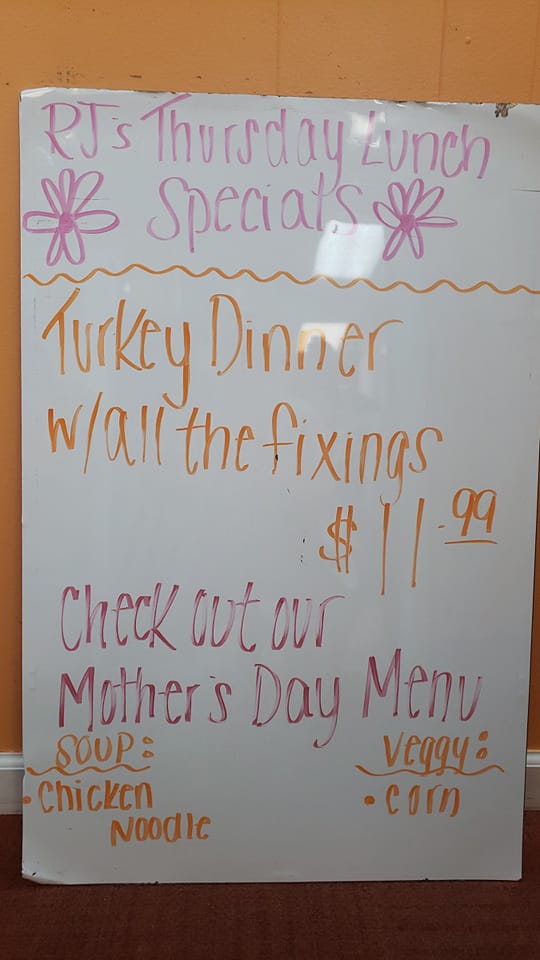 RJ's Thursday Lunch
Specials
Turkey Dinner
w/all the fixings
$11.99
Check out our
Mother's Day Menu
Soup:
• Chicken
Noodle
Veggy:
• Corn